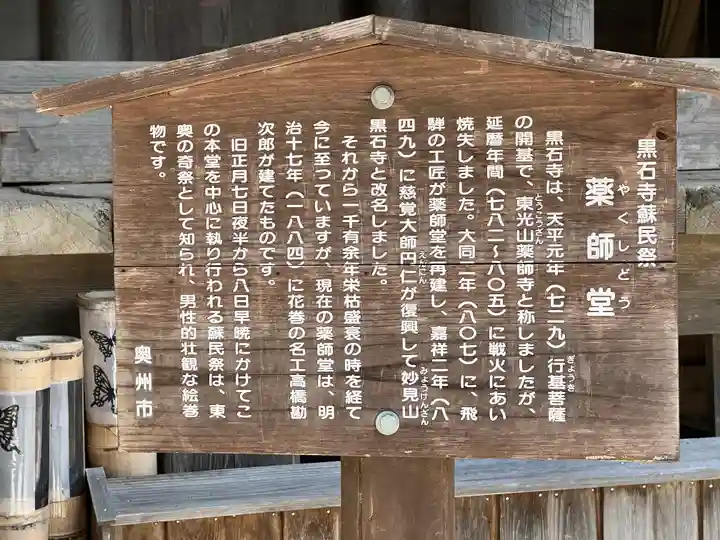 黒石寺蘇民祭
薬師堂
やくしどう
黒石寺は、天平元年(七二九)行基菩薩
ぎょうき
の開基で、東光山薬師寺と称しましたが、
とうこうざん
延暦年間(七八二〜八〇五)に戦火にあい
焼失しました。大同二年(八〇七)に、飛
騨の工匠が薬師堂を再建し、嘉祥二年(八
四九)に慈覚大師円仁が復興して妙見山
えんにん
みょうけんざん
黒石寺と改名しました。
それから一千有余年栄枯盛衰の時を経て
今に至っていますが、現在の薬師堂は、明
治十七年(一八八四)に花巻の名工高橋勘
次郎が建てたものです。
旧正月七日夜半から八日早暁にかけてこ
の本堂を中心に執り行われる蘇民祭は、東
奥の奇祭として知られ、男性的壮観な絵巻
物です。
奥州市